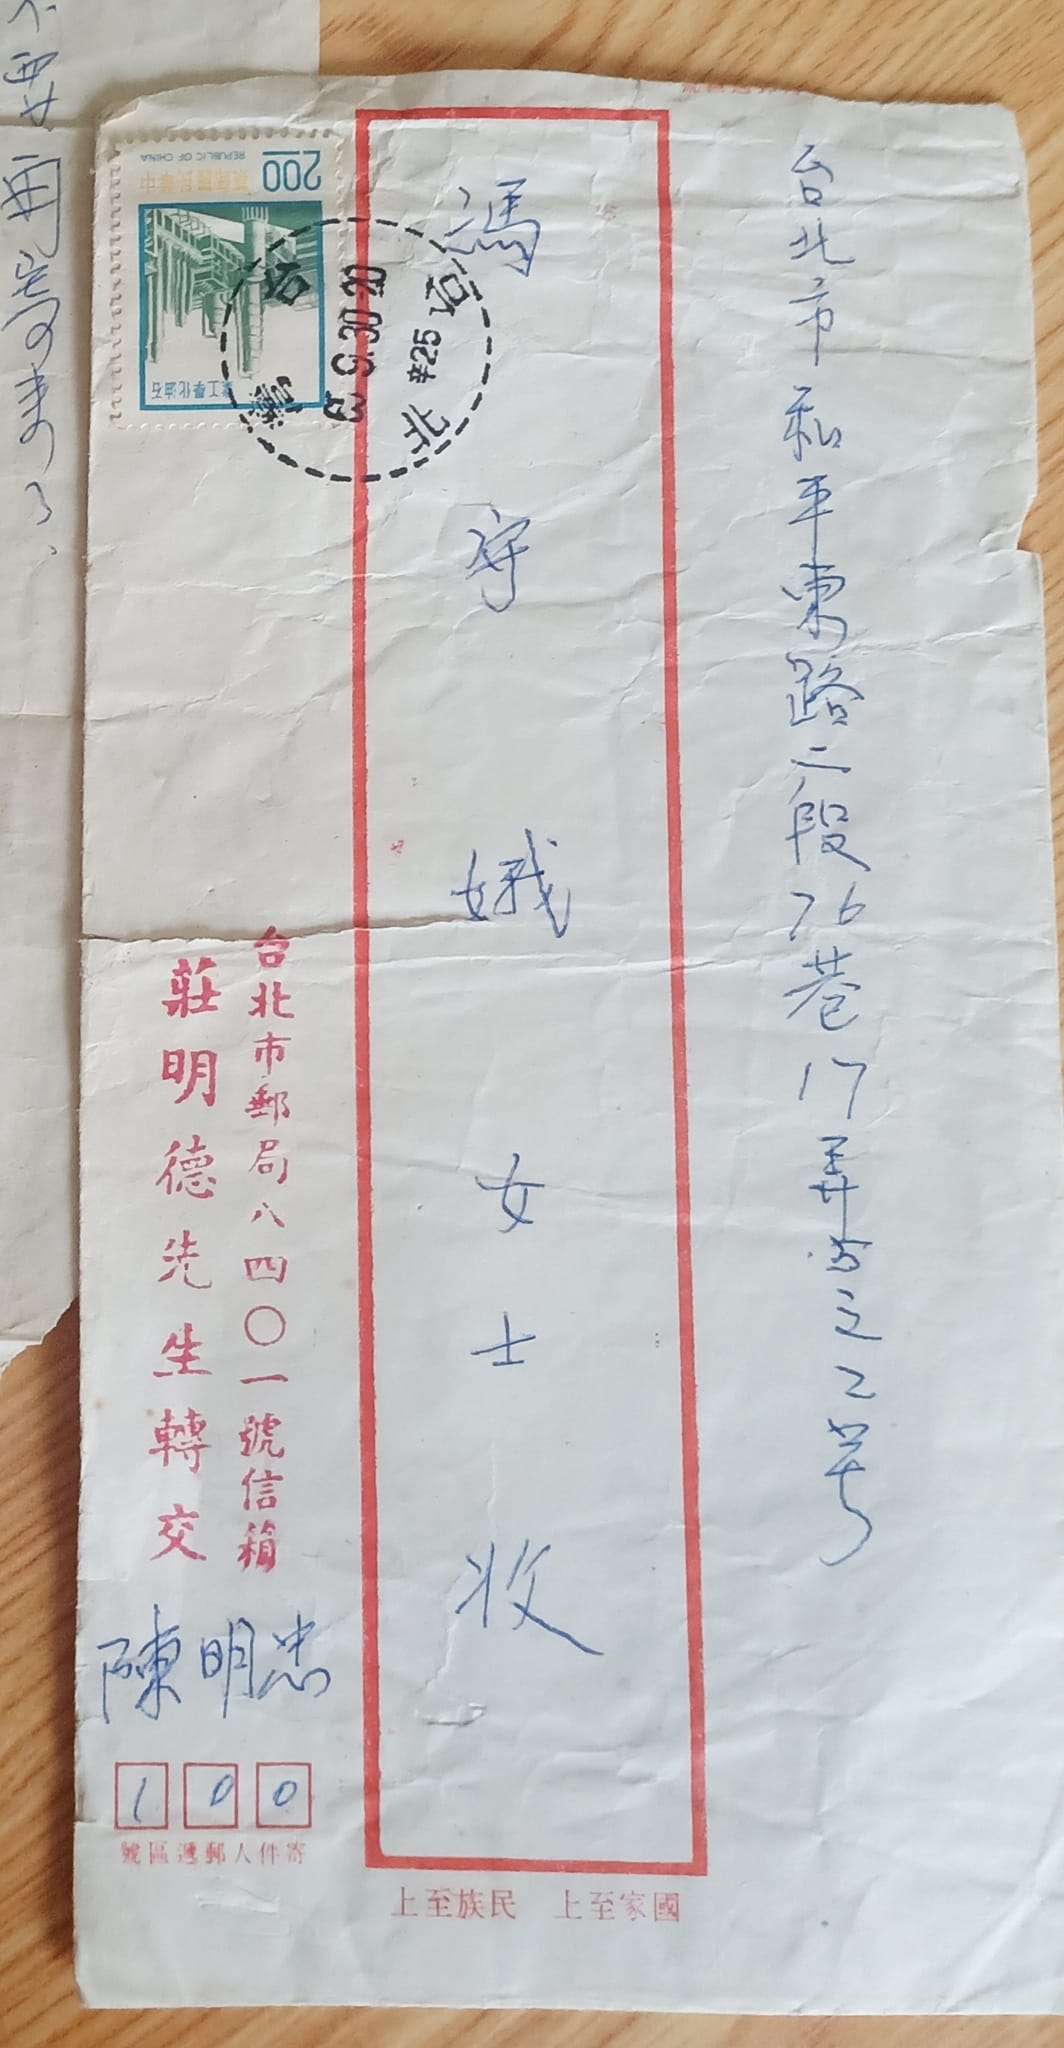 台北市和平東路二段76巷17弄5之2号
馮守娥女士收
台北市郵局八四〇一號信箱
莊明德先生轉交
陳明忠
100
寄件人郵遞區號
國家至上 民族至上
2.00
REPUBLIC OF CHINA
中華民國郵票
石油化學工業
臺 台
9.30.20
台北 #25
再寫來了.